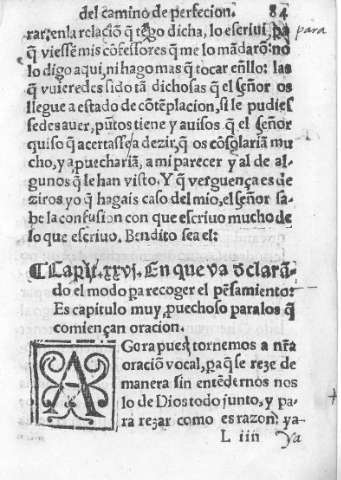 del camino de perfecion. 84
rar: en la relaciõ q̃ tẽgo dicha, lo escriui, pa para
q̃ viessẽ mis cõfessores q̃ me lo mãdarõ: no
lo digo aqui, ni hago mas q̃ tocar ẽllo: las
q̃ vuieredes sido tã dichosas q̃ el señor os
llegue a estado de cõtẽplacion, si le pudies
sedes auer, pũtos tiene y auisos q̃ el señor
quiso q̃ acertasse a dezir, q̃ os cõsolariã mu
cho, y a puechariã, a mi parecer y al de al-
gunos q̃ le han visto. Y q̃ verguença es de
ziros yo q̃ hagais caso del mio, el señor sa-
be la confusion con que escriuo mucho de
lo que escriuo. Bendito sea el:
¶ Capit. xxvj. En que va d̃clarã-
do el modo pa recoger el pẽsamiento:
Es capitulo muy, puechoso para los q̃
comiençan oracion.
AGora pues tornemos a nr̃a
oraciõ vocal, pa q̃ se reze de
manera sin entẽdernos nos
lo de Dios todo junto, y pa-
ra rezar como es razon: ya-
L iiij Ya